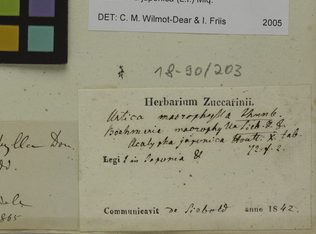 japonica (L.f.) Miq.
DET: C. M. Wilmot-Dear & I. Friis 2005
18-90/203
Herbarium Zuccarinii.
Urtica macrophylla Thunb.
Boehmeria macrophylla Sieb. & Z.
Acalypha japonica Houtt. X. tab.
72. f. 2.
Legi in Japonia
Communicavit de Siebold anno 1842.
ylla Don.
1865